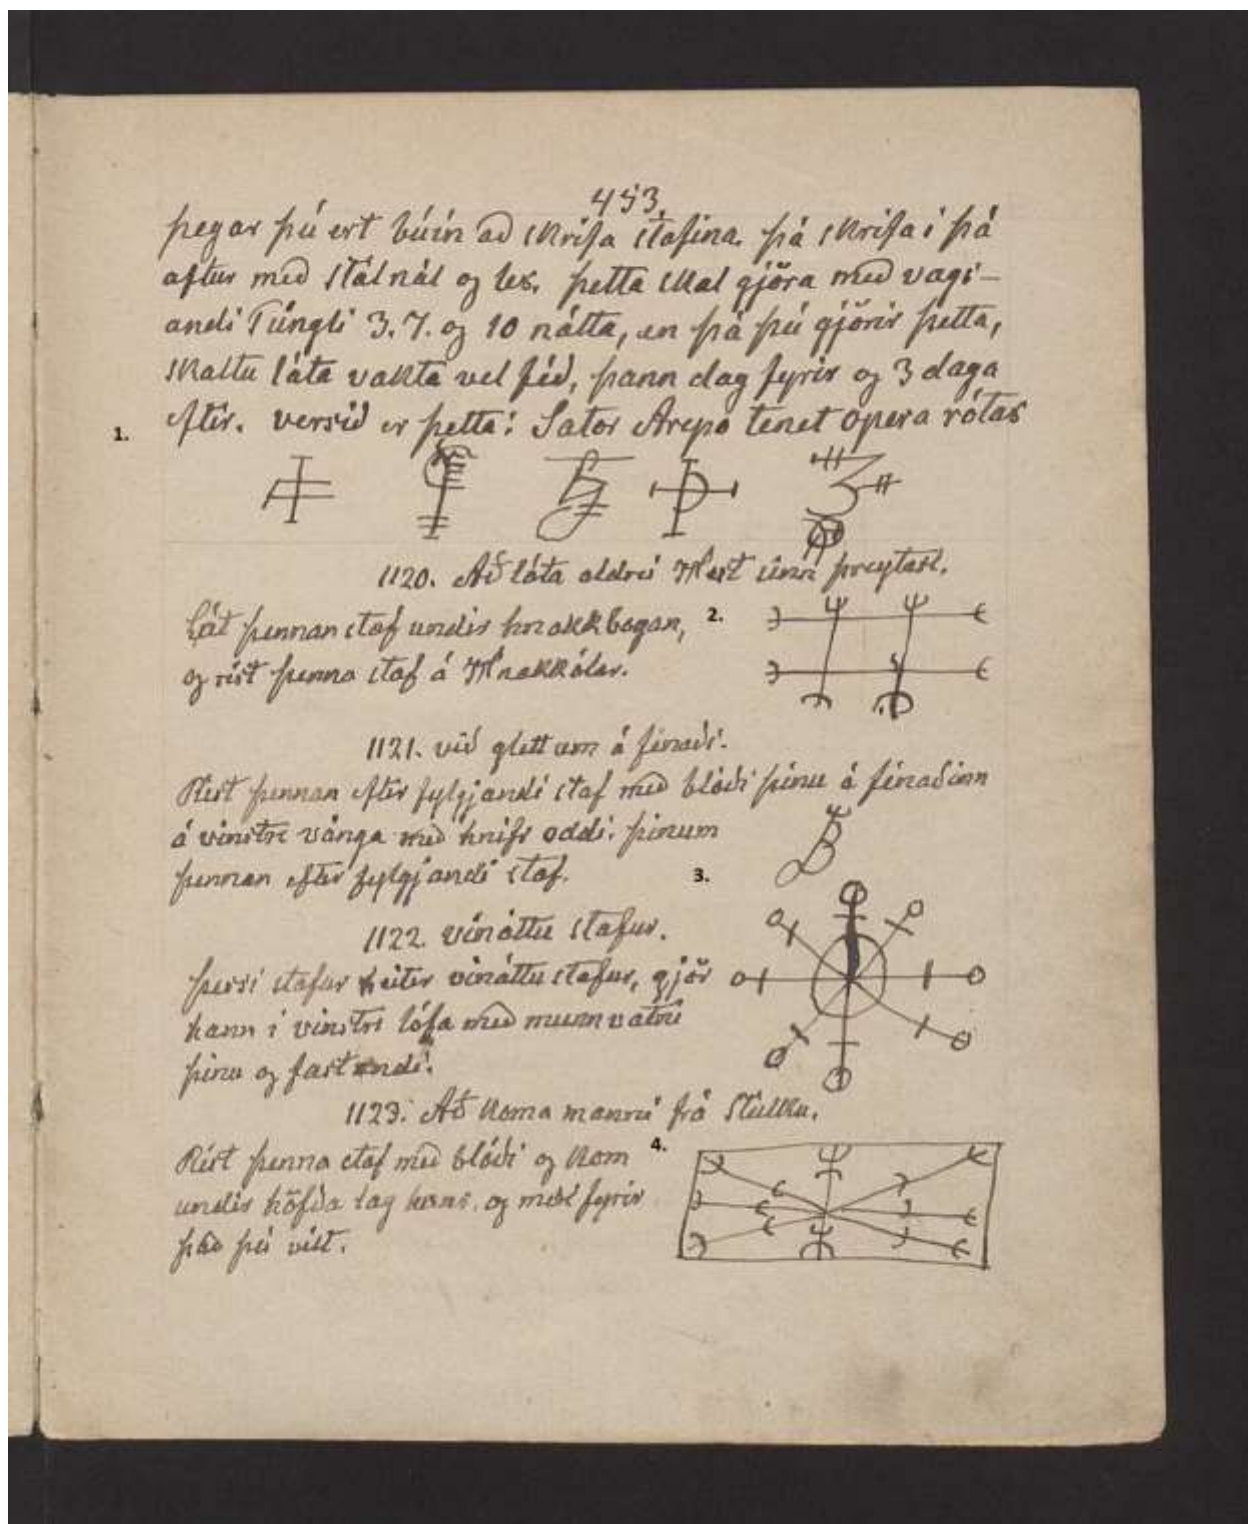 453.
þegar þú ert búin að skrifa stafina. þá skrifa í þá
aftur með stálnál og les. þetta skal gjöra með vags-
andi Túngli 3. 7. og 10 nátta, en þá þú gjörir þetta,
skaltu láta vakta vel féð, þann dag fyrir og 3 daga
eftir. versið er þetta: Sator Arepo tenet opera rótas
1.
1120. Að láta aldrei Hest sinn þreytast.
Lát þennan staf undir hnakkbogan,
og ríst þenna staf á Hnakkólar.
2.
1121. við glettum á fénaði.
Ríst þennan eftir fylgjandi staf með blóði þínu á fénaðinn
á vinstri vánga með hnífs oddi. þinum
þennan eftir fylgjandi staf.
3.
1122. vináttu stafur.
þessi stafur heitir vináttu stafur, gjör
hann í vinstri lófa með munnvatni
þínu og fastandi.
1123. Að koma manni frá Stúlku.
Ríst þenna staf með blóði og kom
4.
undir höfða lag hans, og með fyrir
það þú vilt.